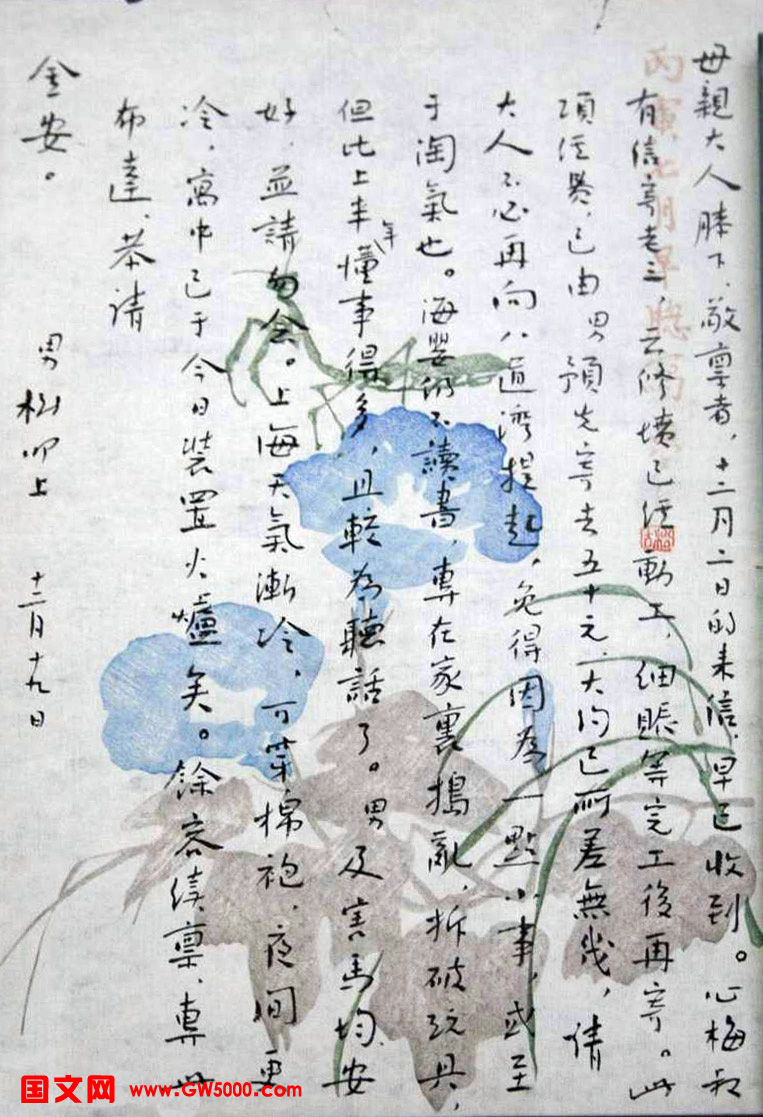 母親大人膝下、敬禀者,十二月二日的来信,早已收到。心梅叔
有信寄老三,云修墳已經動工,細賬等完工後再寄。此
項經費,已由男預先寄去五十元,大約已所差無幾,倩
大人不必再向八道灣提起,免得因為一點小事,或至
于淘氣也。海嬰仍不讀書,專在家裏搗亂,拆破玩具,
但比上半年懂事得多,且較為聽話了。男及害馬均安
好,並請勿念。上海天氣漸冷,可穿棉袍,夜間更
冷,寓中已于今日裝置火爐矣。餘容續禀,專此
布達,恭請
金安。
男樹叩上 十二月十九日
丙寅七月
国文网 www.GW5000.com